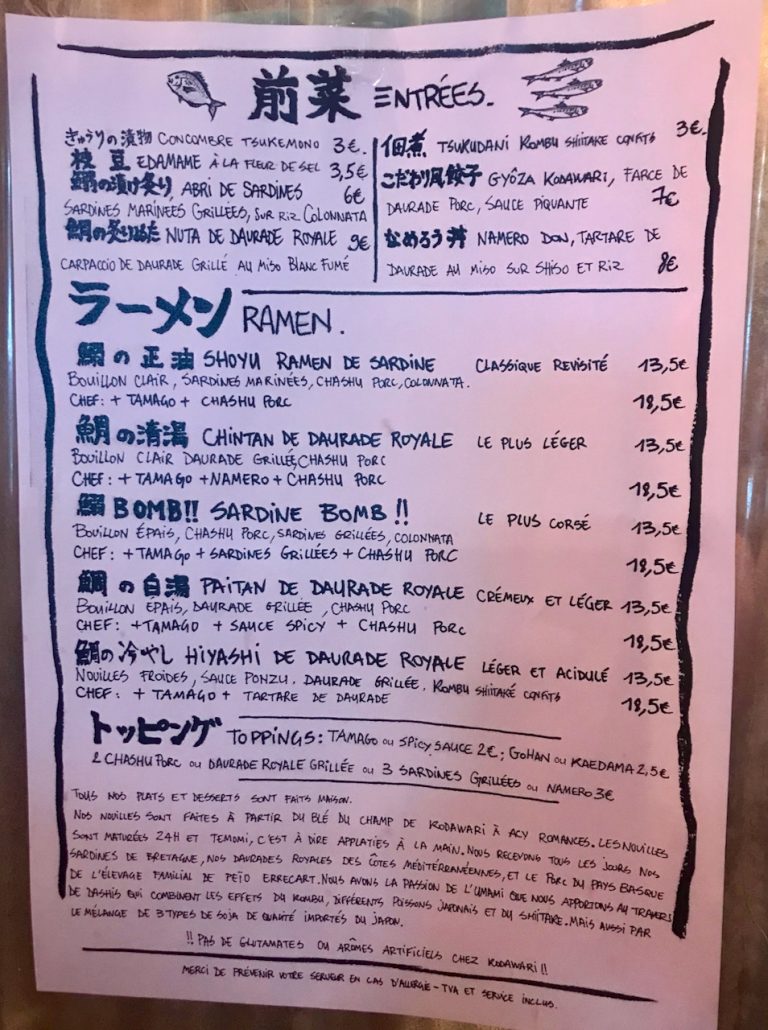 前菜 ENTRÉES.
きゅうりの漬物 CONCOMBRE TSUKEMONO 3€.
枝豆 EDAMAME À LA FLEUR DE SEL 3,5€
鰯の漬け炙り, ABRI DE SARDINES 6€
SARDINES MARINÉES GRILLÉES, SUR RIZ COLONNATA
鯛の炙りぬた NUTA DE DAURADE ROYALE 9€
CARPACCIO DE DAURADE GRILLÉ AU MISO BLANC FUMÉ
佃煮 TSUKUDANI KOMBU SHIITAKE CONFITS 3€.
こだわり風餃子 GYÔZA KODAWARI, FARCE DE
DAURADE PORC, SAUCE PIQUANTE 7€
なめろう丼 NAMERO DON, TARTARE DE
DAURADE AU MISO SUR SHISO ET RIZ 8€
ラーメン RAMEN.
鰯の正油 SHOYU RAMEN DE SARDINE CLASSIQUE REVISITÉ 13,5€
BOUILLON CLAIR, SARDINES MARINÉES, CHASHU PORC, COLONNATA.
CHEF: + TAMAGO + CHASHU PORC 18,5€
鯛の清湯 CHINTAN DE DAURADE ROYALE LE PLUS LÉGER 13,5€
BOUILLON CLAIR DAURADE GRILLÉE, CHASHU PORC
CHEF: + TAMAGO + NAMERO + CHASHU PORC 18,5€
鰯 BOMB!! SARDINE BOMB!! LE PLUS CORSÉ 13,5€
BOUILLON ÉPAIS, CHASHU PORC, SARDINES GRILLÉES, COLONNATA
CHEF: + TAMAGO + SARDINES GRILLÉES + CHASHU PORC 18,5€
鯛の白湯 PAITAN DE DAURADE ROYALE CRÉMEUX ET LÉGER 13,5€
BOUILLON EPAIS, DAURADE GRILLÉE, CHASHU PORC
CHEF: + TAMAGO + SAUCE SPICY + CHASHU PORC 18,5€
鯛の冷やし HIYASHI DE DAURADE ROYALE LÉGER ET ACIDULÉ 13,5€
NOUILLES FROIDES, SAUCE PONZU. DAURADE GRILLÉE, KOMBU SHIITAKÉ CONFITS
CHEF: + TAMAGO + TARTARE DE DAURADE 18,5€
トッピング TOPPINGS: TAMAGO OU SPICY SAUCE 2€; GOHAN OU KAEDAMA 2,5€
2 CHASHU PORC OU DAURADE ROYALE GRILLÉE OU 3 SARDINES GRILLÉES OU NAMERO 3€
TOUS NOS PLATS ET DESSERTS SONT FAITS MAISON.
NOS NOUILLES SONT FAITES À PARTIR DU BLÉ DU CHAMP DE KODAWARI À ACY ROMANCES. LES NOUILLES
SONT MATURÉES 24H ET TEMOMI, C'EST À DIRE APPLATIES À LA MAIN. NOUS RECEVONS TOUS LES JOURS NOS
SARDINES DE BRETAGNE, NOS DAURADES ROYALES DES CÔTES MÉDITÉRRANÉENNES, ET LE PORC DU PAYS BASQUE
DE L'ÉLEVAGE FAMILIAL DE PEÏO ERRECART. NOUS AVONS LA PASSION DE L'UMAMI QUE NOUS APPORTONS AU TRAVERS
DE DASHIS QUI COMBINENT LES EFFETS DU KOMBU, DIFFÉRENTS POISSONS JAPONAIS ET DU SHIITAKE. MAIS AUSSI PAR
LE MÉLANGE DE 3 TYPES DE SOJA DE QUALITÉ IMPORTÉS DU JAPON.
!! PAS DE GLUTAMATES OU ARÔMES ARTIFICIELS CHEZ KODAWARI !!
MERCI DE PRÉVENIR VOTRE SERVEUR EN CAS D'ALLERGIE - TVA ET SERVICE INCLUS.